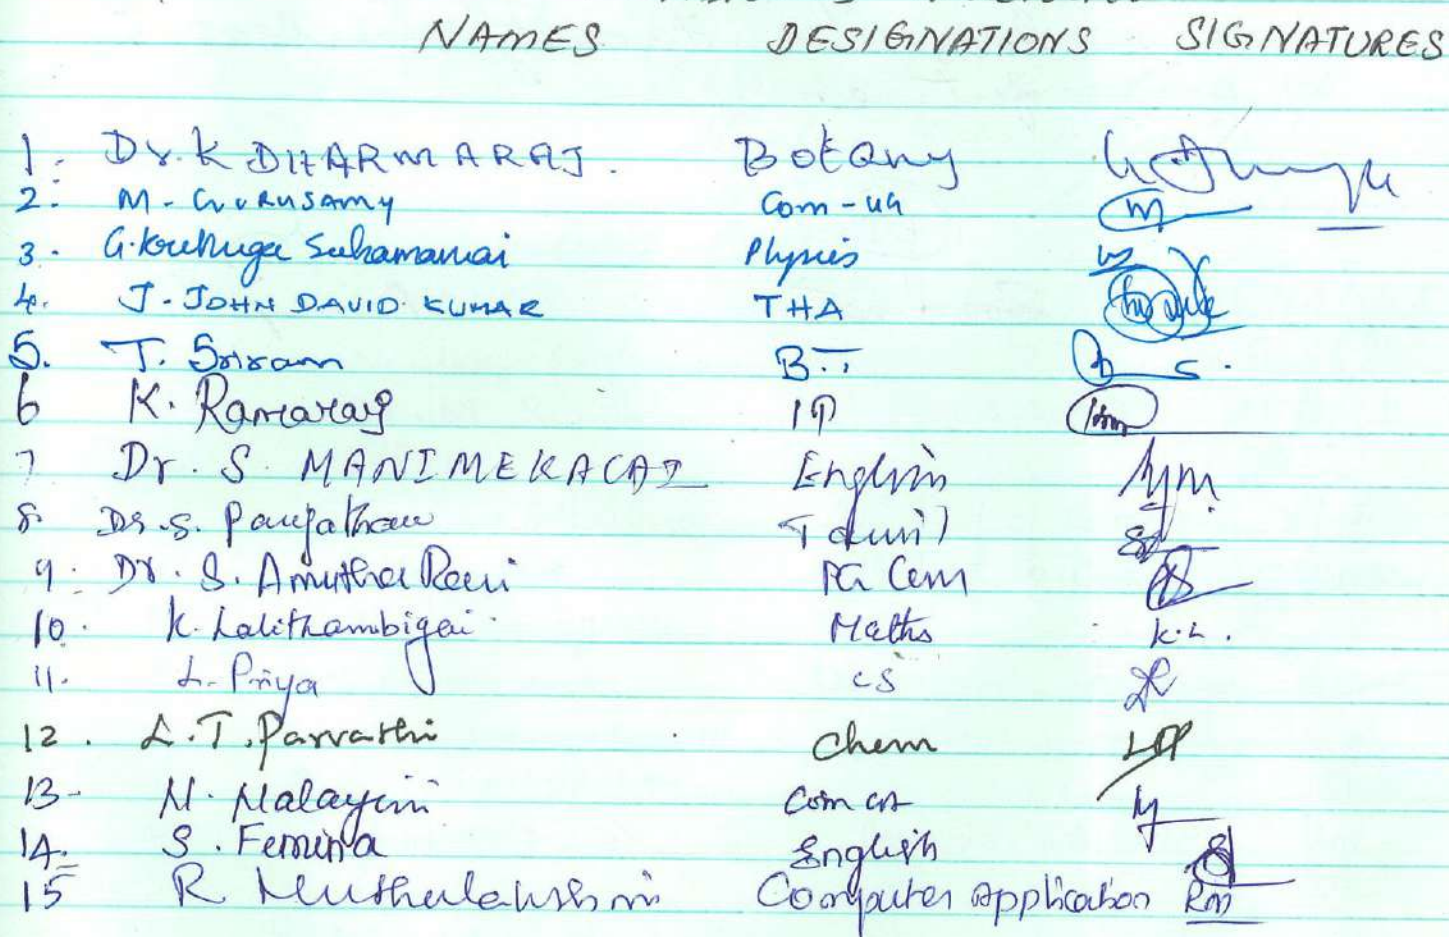 NAMES DESIGNATIONS SIGNATURES
1. Dr. K DHARMARAJ. Botany
2. M. GURUSAMY Com-UG
3. G. Physics
4. J. JOHN DAVID KUMAR THA
5. T. Sriram B.T
6 K. Ramaraj IP
7 Dr. S. MANIMEKALAI English
8. Dr. S. Tamil
9. Dr. S. Amutha Rani PG Com
10. K. Lalithambigai. Maths K.L.
11. L. Priya CS
12. L.T. Parvathi Chem
13- M. Com CA
14. S. Femina English
15 R Muthulakshmi Computer Application RM